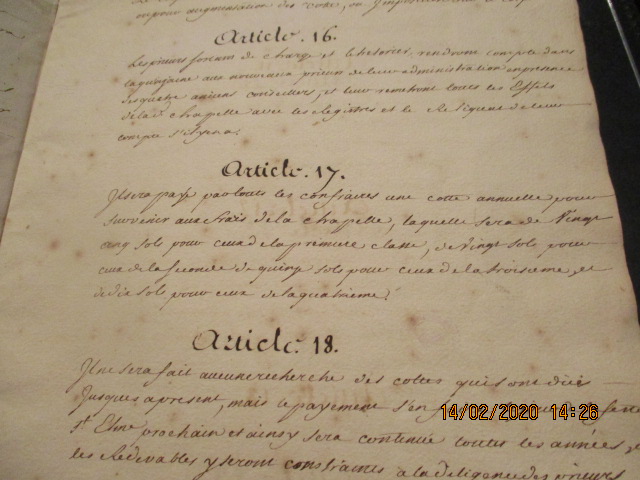 mpour augmentation des
Article. 16.
Les prieurs sortans de charge et le tresorier, rendront compte dans
la quinzaine aux nouveaux prieurs de leur administration en presence
des quatre anciens conseillers, et leur remettront touts les Effets
de lad. Chapelle avec les Registres et le Reliqua de leur
compte
Article. 17.
Il sera payé par touts les confraires une cotte annuelle pour
subvenir aux frais de la chapelle, laquelle sera de Vingt
cinq sols pour ceux de la premiere classe, de Vingt sols pour
ceux de la seconde de quinze sols pour ceux de la troisieme, et
de dix sols pour ceux de la quatrieme.
Article. 18.
Il ne sera fait aucune recherche des cottes qui sont düës
jusques apresent, mais le payement s'en
St Elme prochain et ainsy sera continué toutes les années, et
les Redevables y seront constraints a la diligence des prieurs
14/02/2020 14:26